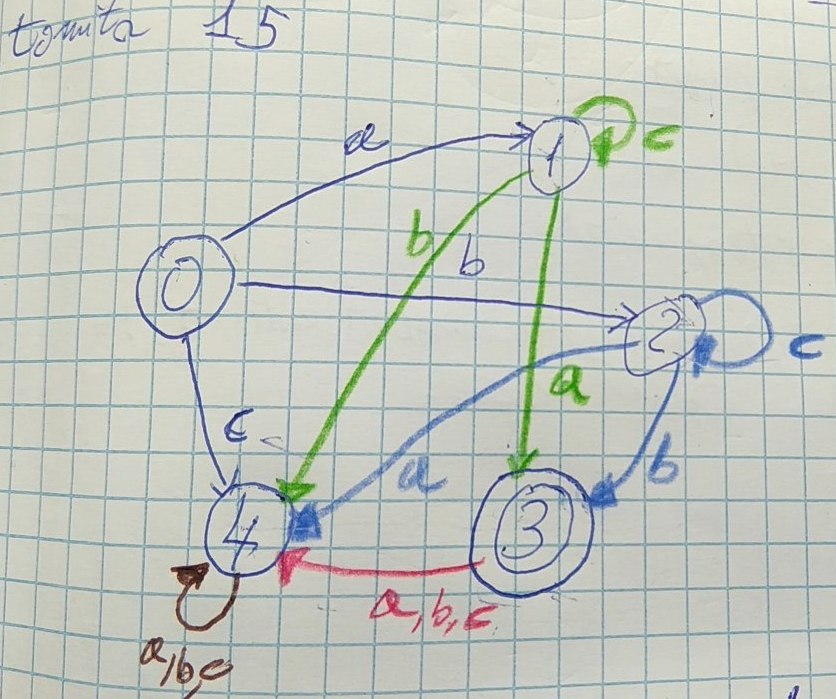 tomita 15
a
1
c
b
b
0
2
c
a
c
a
b
4
3
a,b,c
a,b,c